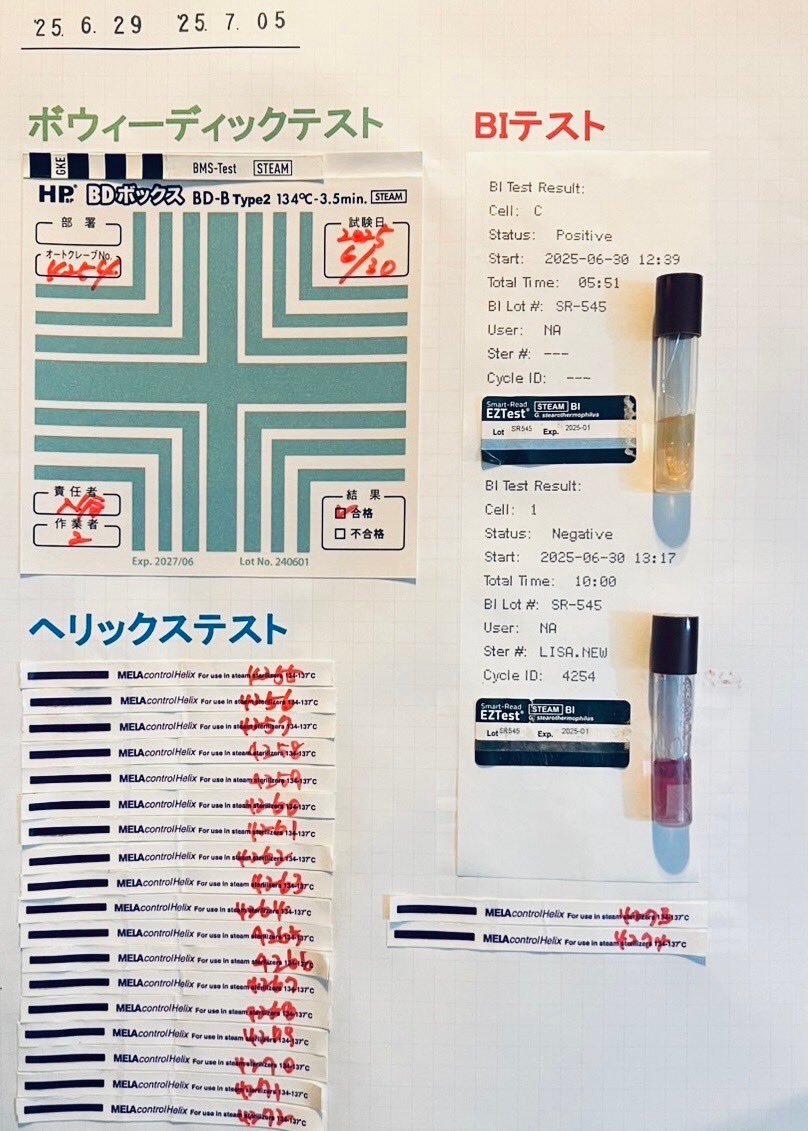 '25. 6. 29 '25. 7. 05
ボウィーディックテスト
GKE BMS-Test STEAM
HP BDボックス BD-B Type2 134℃-3.5min. STEAM
部署
オートクレーブNo.
4254
試験日
2025
6/30
責任者
作業者
結果
合格
不合格
Exp. 2027/06 Lot No. 240601
ヘリックステスト
MELAcontrolHelix For use in steam sterilizers 134-137°C
MELAcontrolHelix For use in steam sterilizers 134-137°C 4256
MELAcontrolHelix For use in steam sterilizers 134-137°C 4257
MELAcontrolHelix For use in steam sterilizers 134-137°C 4258
MELAcontrolHelix For use in steam sterilizers 134-137°C 4259
MELAcontrolHelix For use in steam sterilizers 134-137°C 4260
MELAcontrolHelix For use in steam sterilizers 134-137°C 4261
MELAcontrolHelix For use in steam sterilizers 134-137°C 4262
MELAcontrolHelix For use in steam sterilizers 134-137°C 4263
MELAcontrolHelix For use in steam sterilizers 134-137°C 4264
MELAcontrolHelix For use in steam sterilizers 134-137°C 4265
MELAcontrolHelix For use in steam sterilizers 134-137°C 4266
MELAcontrolHelix For use in steam sterilizers 134-137°C 4267
MELAcontrolHelix For use in steam sterilizers 134-137°C 4268
MELAcontrolHelix For use in steam sterilizers 134-137°C 4269
MELAcontrolHelix For use in steam sterilizers 134-137°C 4270
MELAcontrolHelix For use in steam sterilizers 134-137°C 4271
MELAcontrolHelix For use in steam sterilizers 134-137°C 4272
BIテスト
BI Test Result:
Cell: C
Status: Positive
Start: 2025-06-30 12:39
Total Time: 05:51
BI Lot #: SR-545
User: NA
Ster #: ---
Cycle ID: ---
Smart-Read
EZTest® STEAM BI
G. stearothermophilus
Lot SR545 Exp. 2025-01
BI Test Result:
Cell: 1
Status: Negative
Start: 2025-06-30 13:17
Total Time: 10:00
BI Lot #: SR-545
User: NA
Ster #: LISA.NEW
Cycle ID: 4254
Smart-Read
EZTest® STEAM BI
G. stearothermophilus
Lot SR545 Exp. 2025-01
MELAcontrolHelix For use in steam sterilizers 134-137°C 4273
MELAcontrolHelix For use in steam sterilizers 134-137°C 4274